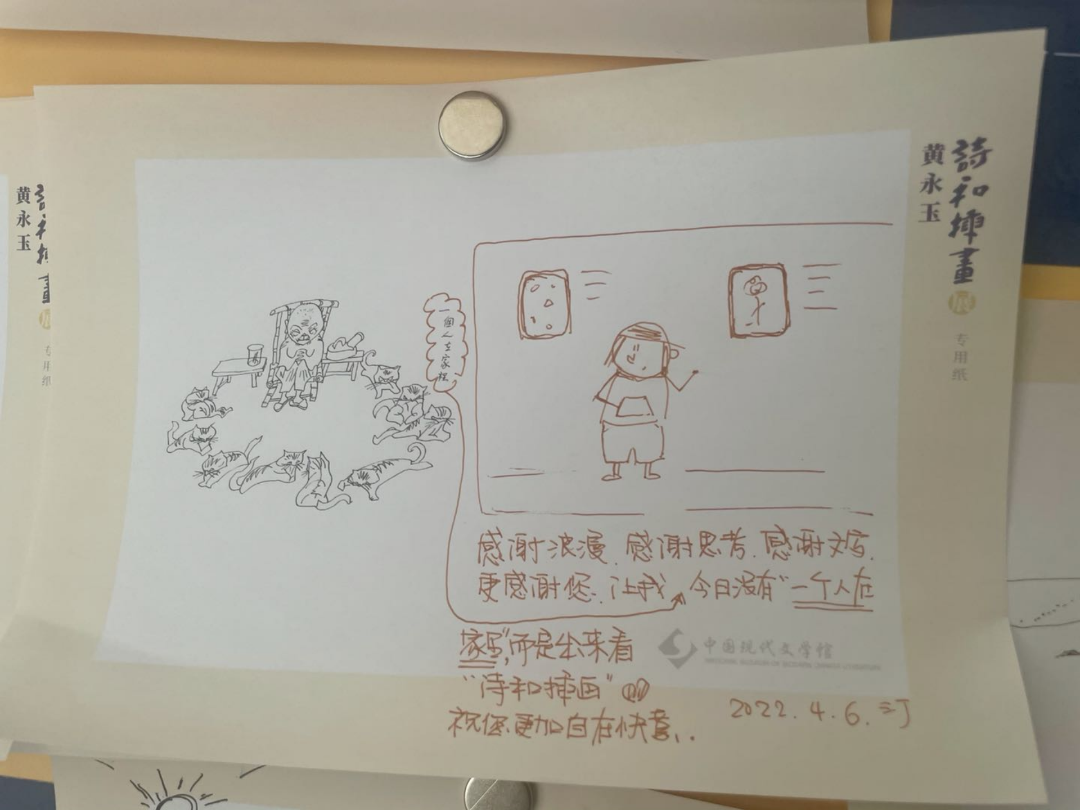 詩和插畫展
黄永玉
专用纸
黄永玉
一個人在家裡
感谢浪漫.感谢思考.感谢文字.
更感谢您.让我 今日没有“一个人在
家里”,而是出来看
“诗和插画”
祝您更加自在快意..
中国现代文学馆
2022.4.6.